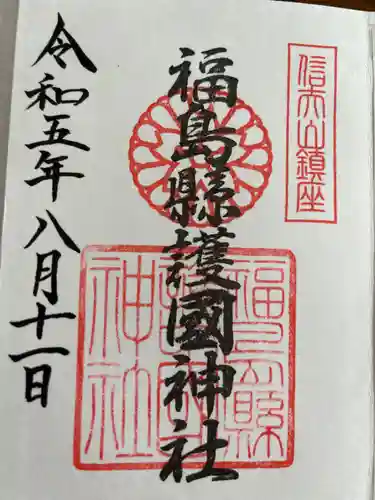 信夫山鎮座
福島縣護國神社
福島縣
護國
神社
令和五年八月十一日